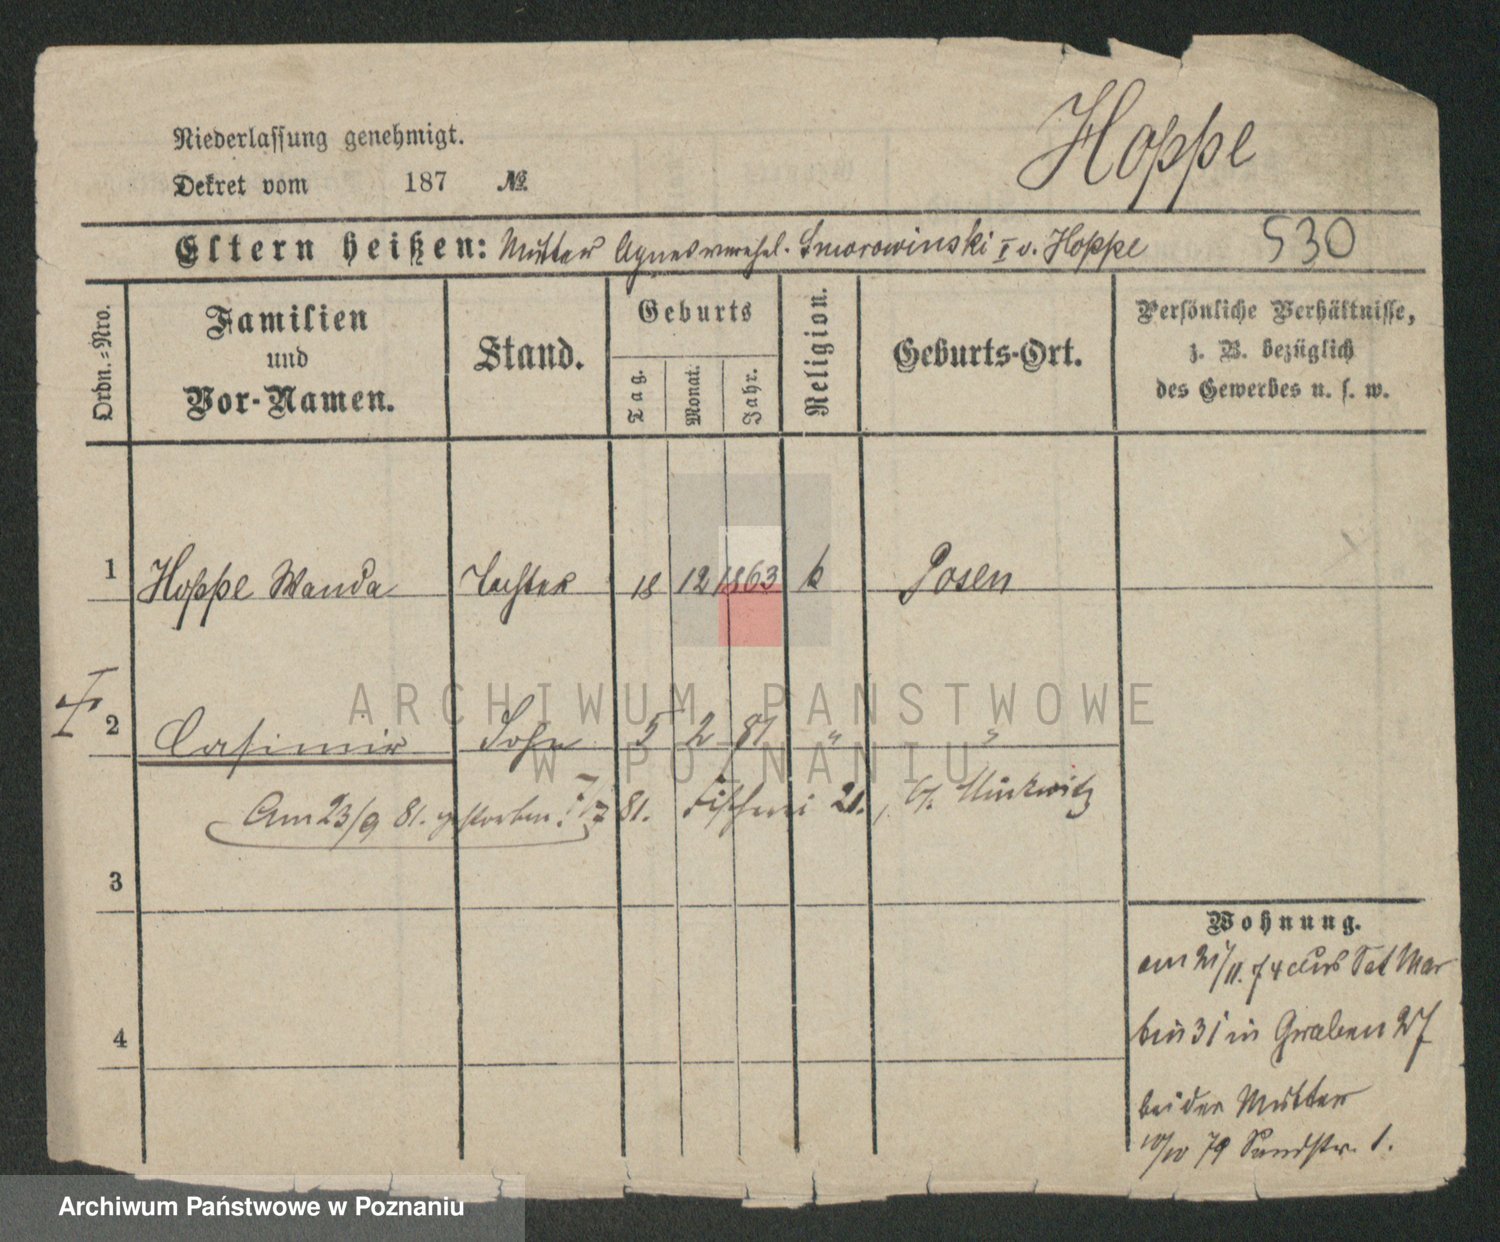 Hoppe
Niederlassung genehmigt.
Dekret vom 187 №
Eltern heißen: Mutter Agnes verehel. Smorowinski I v. Hoppe
530
Ordn.=Nro.
Familien
und
Vor-Namen.
Stand.
Geburts
Tag.
Monat.
Jahr.
Religion.
Geburts-Ort.
Persönliche Verhältnisse,
z. B. bezüglich
des Gewerbes u. s. w.
1 Hoppe Wanda Tochter 18 12 1863 k Posen
2 Casimir Sohn 5 2 81 " "
Am 23/9 81. gestorben. 81. Fischerei 21., b/. Minkwitz
3
4
Wohnung.
am 21/11. 74 aus Sct Mar
tin 31 in Graben 27
bei der Mutter
10/10 79 Sandstr. 1.
ARCHIWUM PAŃSTWOWE
W POZNANIU
Archiwum Państwowe w Poznaniu